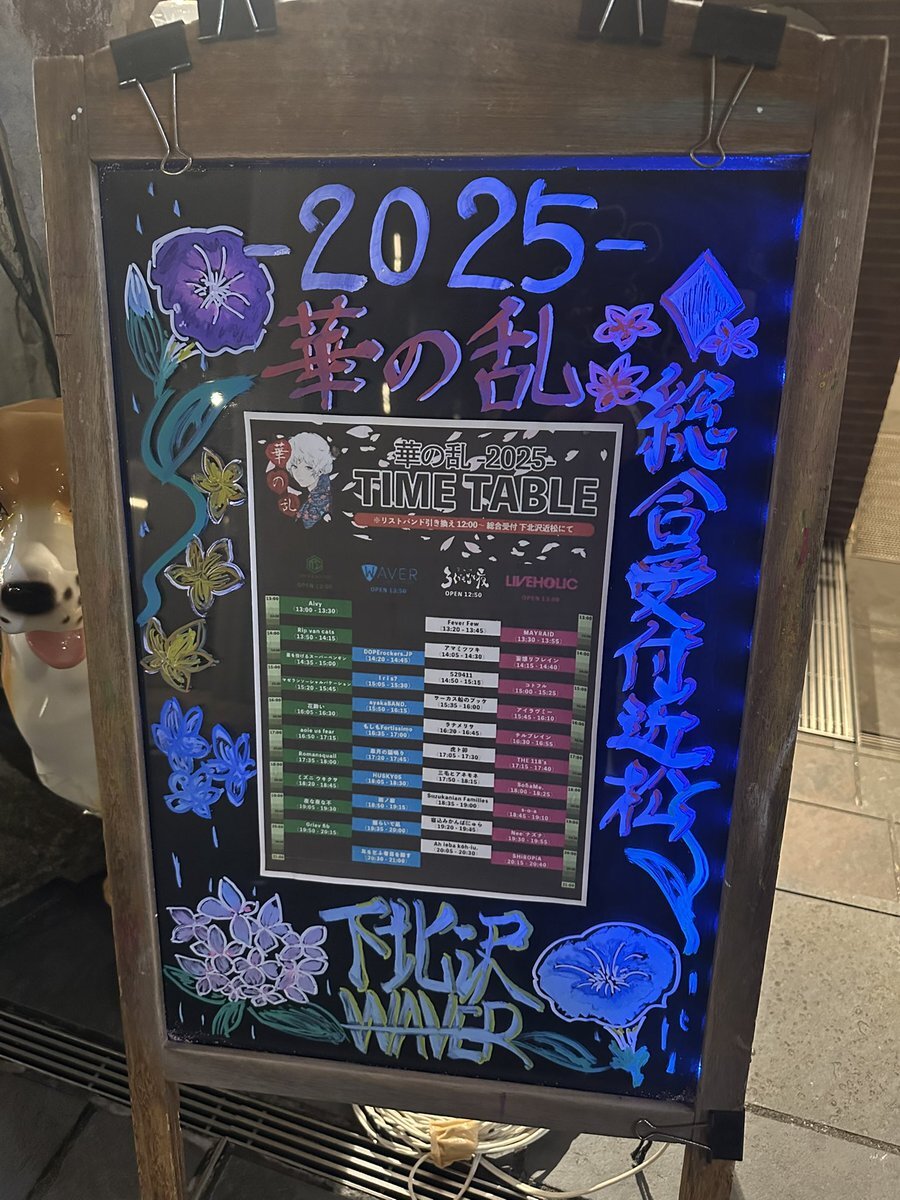 -2025-
華の乱
総合受付近松
華の乱
華の乱 -2025-
TIME TABLE
※リストバンド引き換え 12:00~ 総合受付 下北沢近松にて
OPEN 12:00
WAVER
OPEN 13:50
ろくでもない夜
OPEN 12:50
LIVEHOLIC
OPEN 13:00
Aivy
(13:00 - 13:30)
Rip van cats
(13:50 - 14:15)
(14:35 - 15:00)
(15:20 - 15:45)
花酔い
(16:05 - 16:30)
aoio us fear
(16:50 - 17:15)
Romansquall
(17:35 - 18:00)
ミズニウキクサ
(18:20 - 18:45)
夜な夜な不
(19:05 - 19:30)
Griev øb
(19:50 - 20:15)
DOPErockers.JP
(14:20 - 14:45)
1r1s?
(15:05 - 15:30)
ayakaBAND.
(15:50 - 16:15)
もしもFortissimo
(16:35 - 17:00)
皐月の腹鳴り
(17:20 - 17:45)
HUSKY05
(18:05 - 18:30)
(18:50 - 19:15)
眠らいで凪
(19:35 - 20:00)
(20:30 - 21:00)
Fever Few
(13:20 - 13:45)
アマミツツキ
(14:05 - 14:30)
529411
(14:50 - 15:15)
サーカス船のブッケ
(15:35 - 16:00)
ラナメリサ
(16:20 - 16:45)
虎ト卯
(17:05 - 17:30)
三毛とアネモネ
(17:50 - 18:15)
Suzukanian Families
(18:35 - 19:00)
寝込みかんぱにゅら
(19:20 - 19:45)
Ah leba kóh-iu.
(20:05 - 20:30)
MAYSAID
(13:30 - 13:55)
妄想リフレイン
(14:15 - 14:40)
コトフル
(15:00 - 15:25)
アイラヴミー
(15:45 - 16:10)
テルブレイン
(16:30 - 16:55)
THE 118's
(17:15 - 17:40)
SoRaMe.
(18:00 - 18:25)
s-o-a
(18:45 - 19:10)
Neo:ナズナ
(19:30 - 19:55)
SHiROPiA
(20:15 - 20:40)
下北沢
WAVER